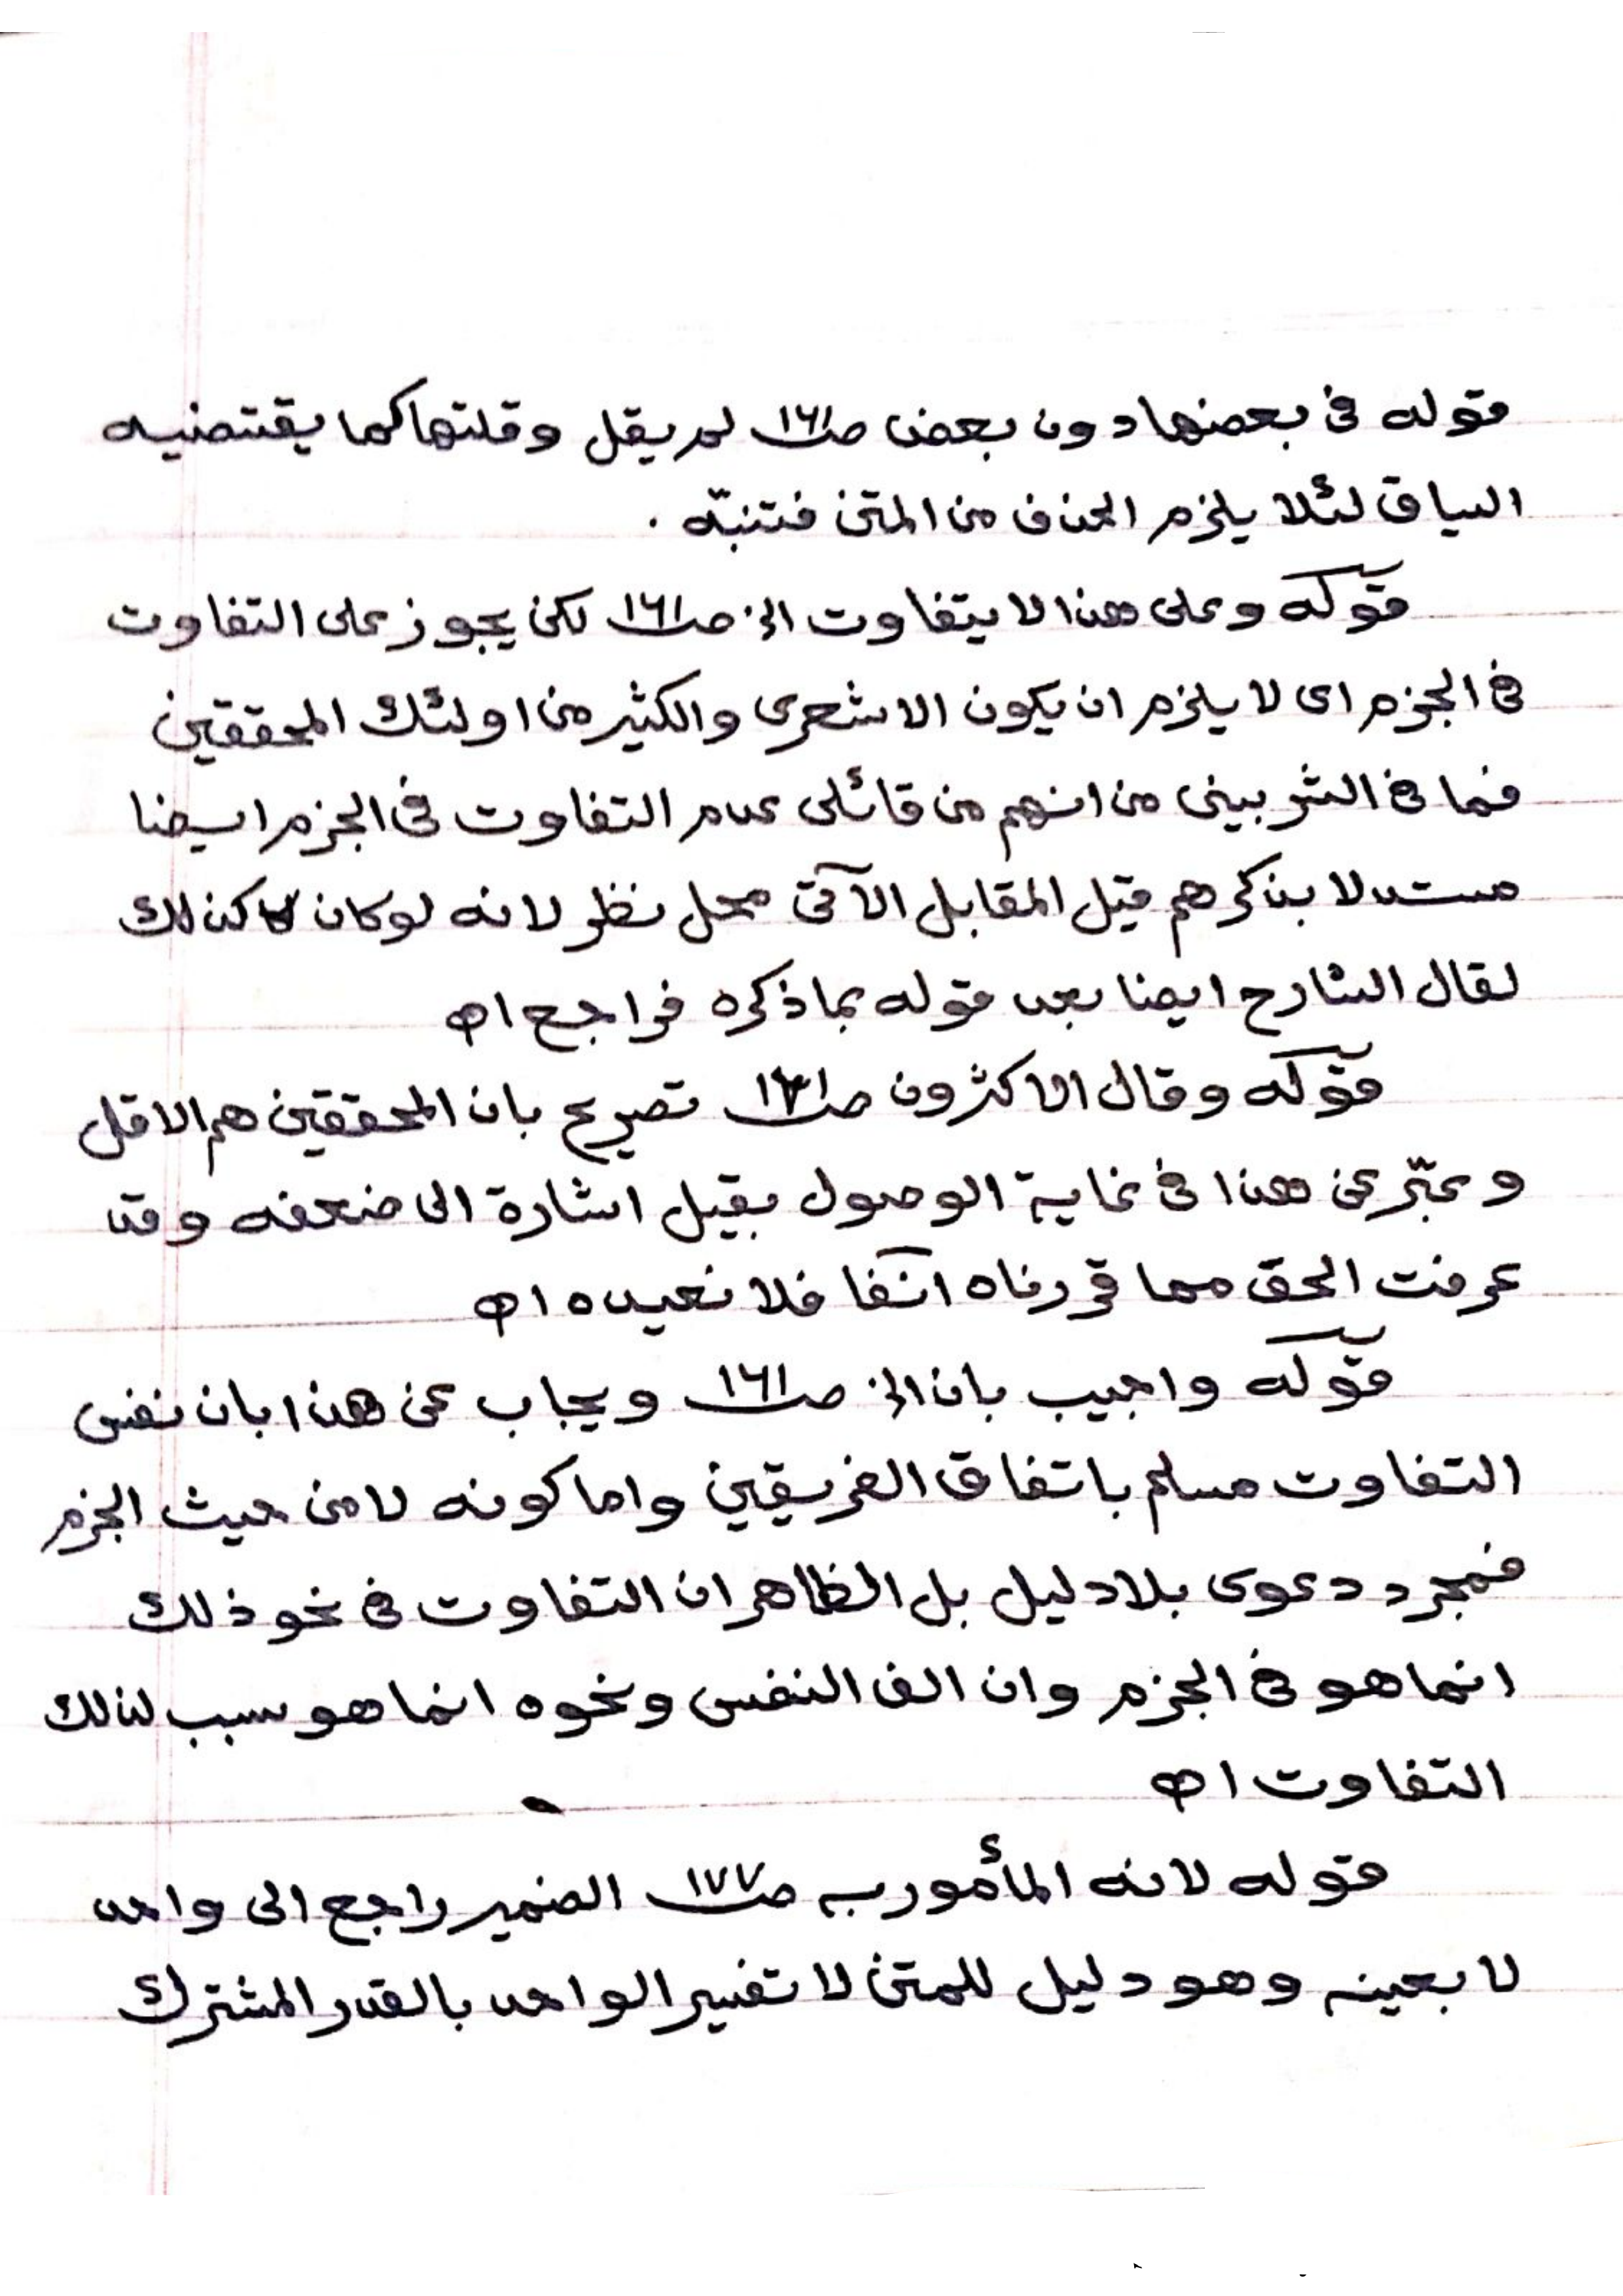 قوله فى بعضها دون بعض صـ١٦١ لم يقل وقلتها كما يقتضيه
السياق لئلا يلزم الحذف من المتن فتنبّه .
قوله وعلى هذا لا يتفاوت الخ صـ١٦١ لكن يجوز على التفاوت
فى الجزم اى لا يلزم ان يكون الاشعرى والكثير من اولئك المحققين
فما فى الشربينى من انهم من قائلى عدم التفاوت فى الجزم ايضا
مستدلا بذكرهم قبل المقابل الآتى محل نظر لانه لو كان كذلك
لقال الشارح ايضا بعد قوله بما ذكره فراجع اه
قوله وقال الاكثرون صـ١٦١ تصريح بان المحققين هم الاقل
وعبّر عن هذا فى غاية الوصول بقيل اشارة الى ضعفه وقد
عرفت الحق مما قررناه آنفا فلا نعيده اه
قوله واجيب بان الخ صـ١٦١ ويجاب عن هذا بان نفس
التفاوت مسلم باتفاق الفريقين واما كونه لا من حيث الجزم
فمجرد دعوى بلا دليل بل الظاهر ان التفاوت فى نحو ذلك
انما هو فى الجزم وان الف النفس ونحوه انما هو سبب لذلك
التفاوت اه
قوله لانه المأمور به صـ١٧٧ الضمير راجع الى واحد
لا بعينه وهو دليل للمتن لا تفسير الواحد بالقدر المشترك